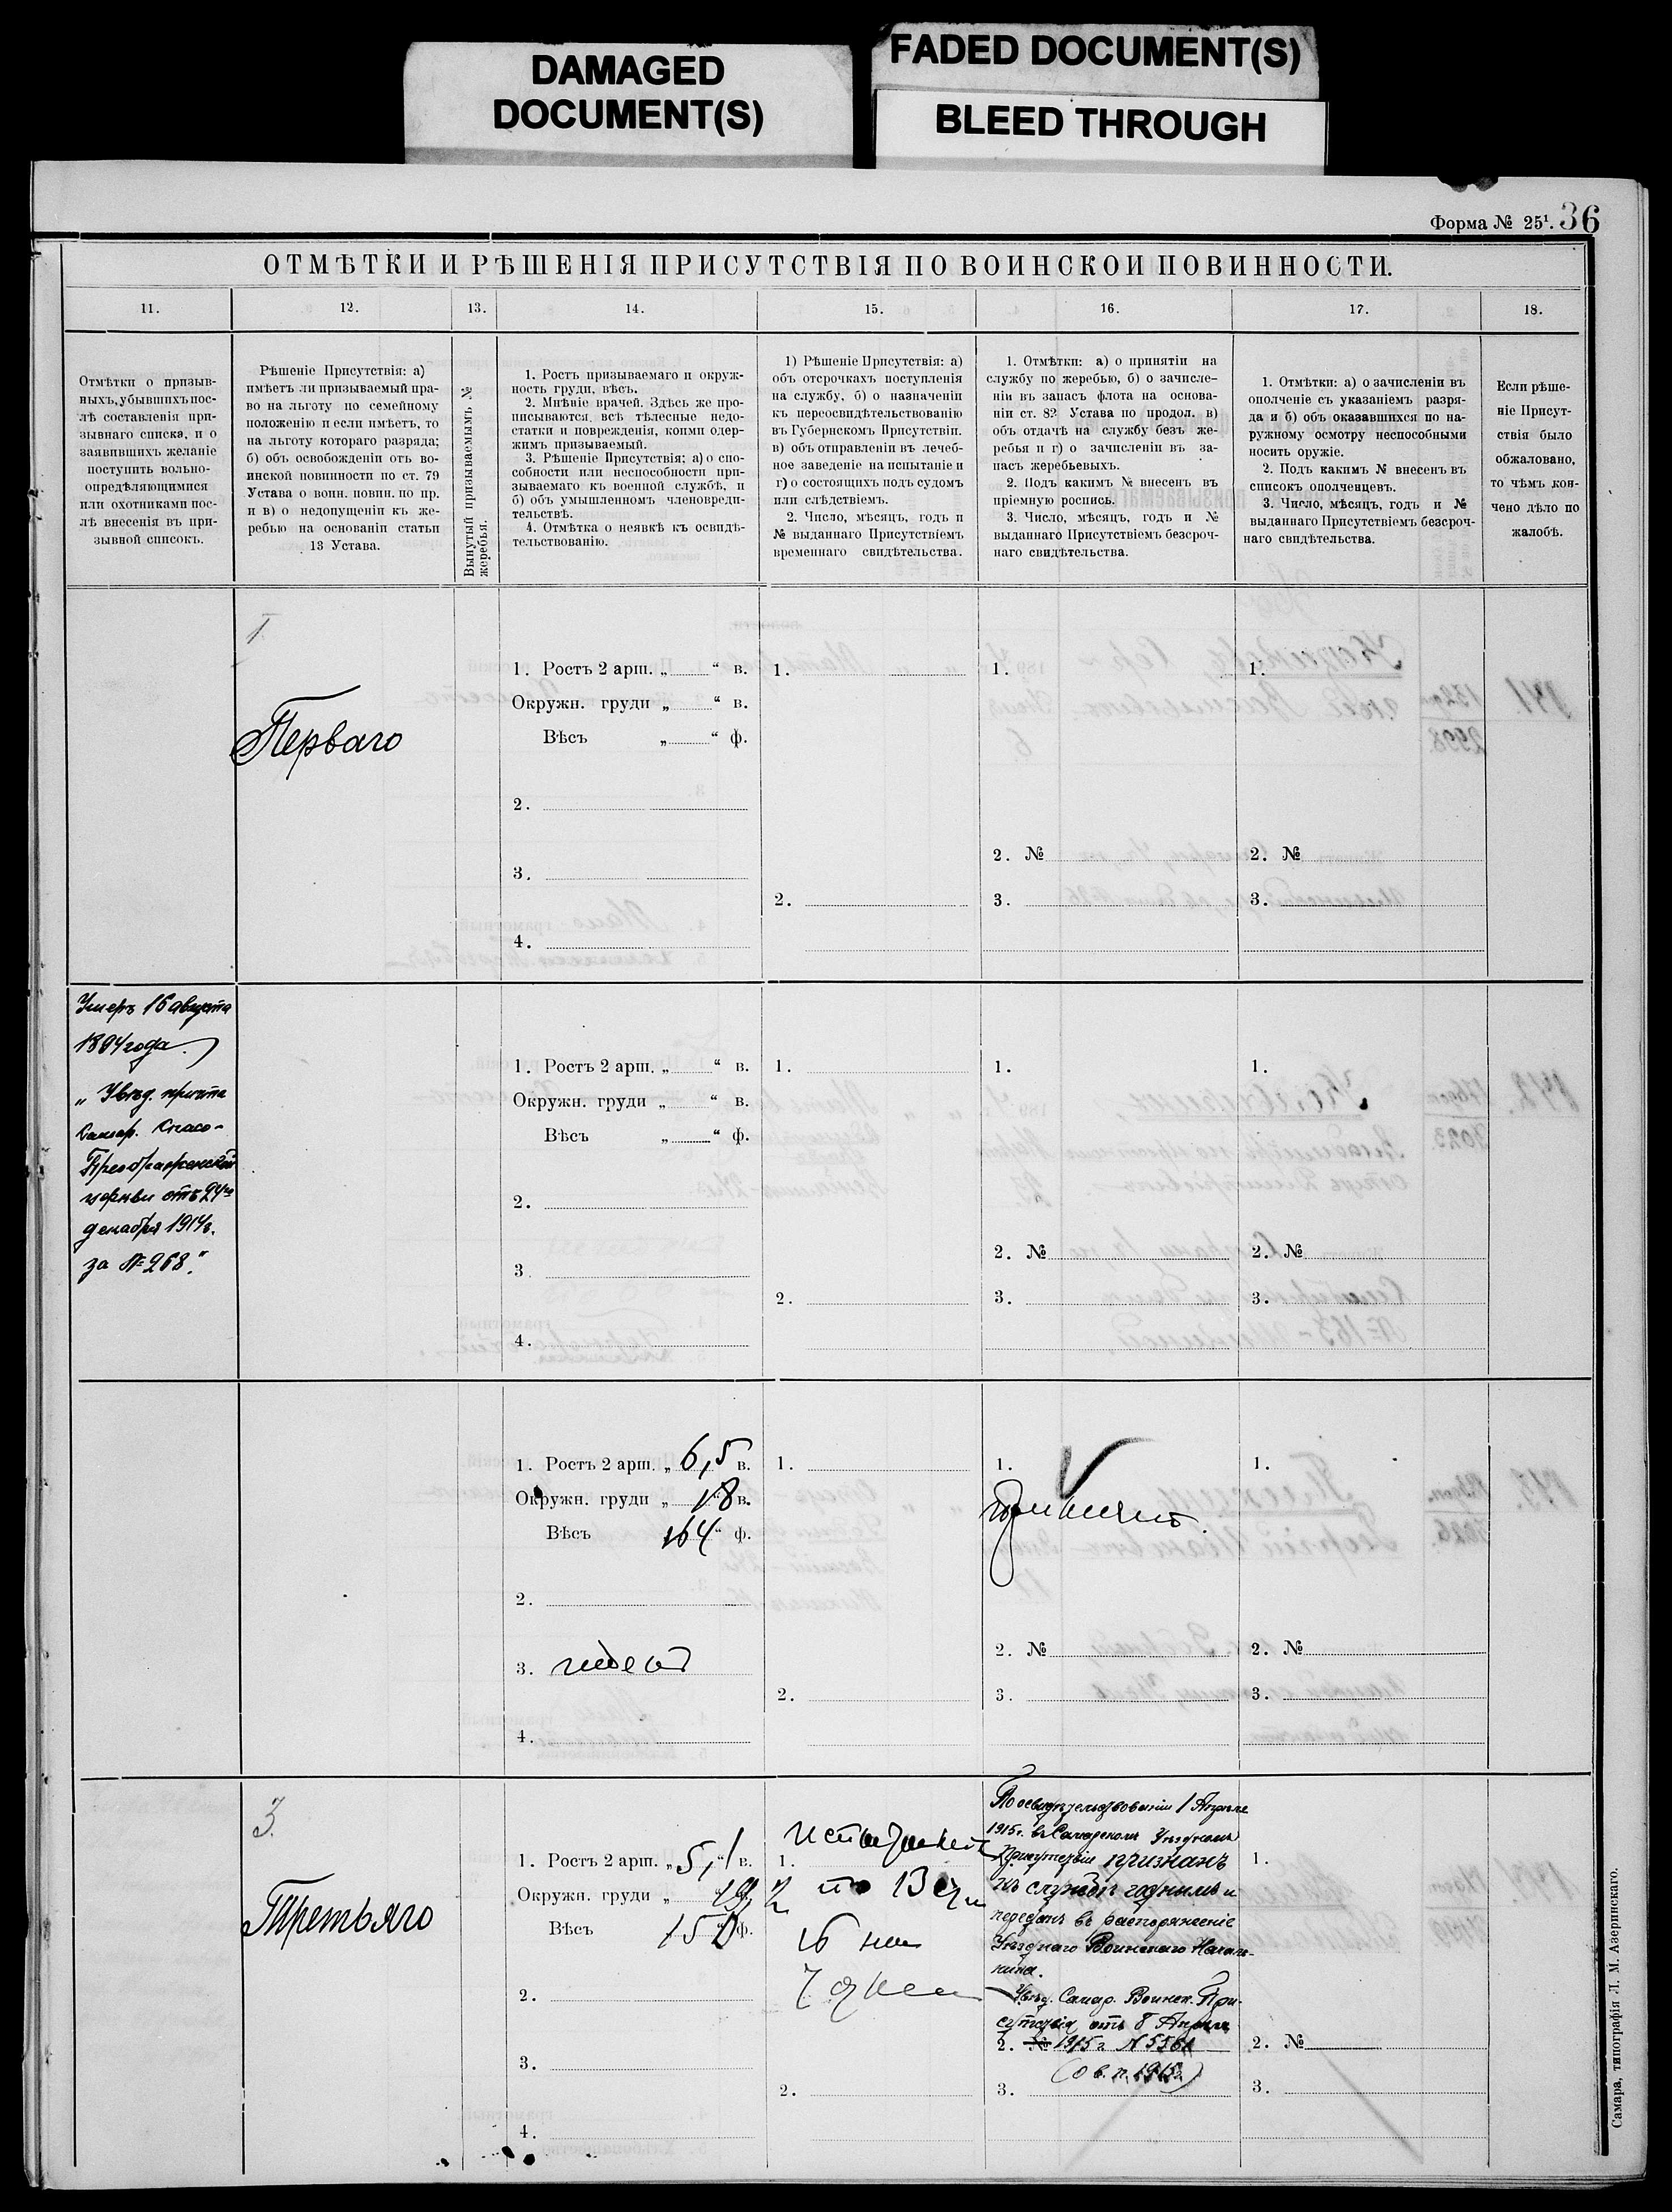 DAMAGED
DOCUMENT(S)
FADED DOCUMENT(S)
BLEED THROUGH
Форма № 25¹. 36
ОТМѢТКИ И РѢШЕНІЯ ПРИСУТСТВІЯ ПО ВОИНСКОЙ ПОВИННОСТИ.
11. 12. 13. 14. 15. 16. 17. 18.
Отмѣтки о призыв-
ныхъ, убывшихъ пос-
лѣ составленія при-
зывнаго списка, и о
заявившихъ желаніе
поступить вольно-
опредѣляющимися
или охотниками пос-
лѣ внесенія въ при-
зывной списокъ.
Рѣшеніе Присутствія: а)
имѣетъ ли призываемый пра-
во на льготу по семейному
положенію и если имѣетъ, то
на льготу котораго разряда;
б) объ освобожденіи отъ во-
инской повинности по ст. 79
Устава о воин. повин. по пр.
и в) о недопущеніи къ же-
ребью на основаніи статьи
13 Устава.
Вынутый призываемымъ №
жеребья.
1. Ростъ призываемаго и окруж-
ность груди, вѣсъ.
2. Мнѣніе врачей. Здѣсь же про-
писываются всѣ тѣлесные недо-
статки и поврежденія, коими одер-
жимъ призываемый.
3. Рѣшеніе Присутствія; а) о спо-
собности или неспособности при-
зываемаго къ военной службѣ, и
б) объ умышленномъ членовреди-
тельствѣ.
4. Отмѣтка о неявкѣ къ освидѣ-
тельствованію.
1) Рѣшеніе Присутствія: а)
объ отсрочкахъ поступленія
на службу, б) о назначеніи
къ переосвидѣтельствованію
въ Губернскомъ Присутствіи.
в) объ отправленіи въ лечеб-
ное заведеніе на испытаніе и
г) о состоящихъ подъ судомъ
или слѣдствіемъ.
2. Число, мѣсяцъ, годъ и
№ выданнаго Присутствіемъ
временнаго свидѣтельства.
1. Отмѣтки: а) о принятіи на
службу по жеребью, б) о зачисле-
ніи въ запасъ флота на основа-
ніи ст. 82 Устава по продол. в)
объ отдачѣ на службу безъ же-
ребья и г) о зачисленіи въ за-
пасъ жеребьевыхъ.
2. Подъ какимъ № внесенъ въ
пріемную роспись.
3. Число, мѣсяцъ, годъ и №
выданнаго Присутствіемъ безсроч-
наго свидѣтельства.
1. Отмѣтки: а) о зачисленіи въ
ополченіе съ указаніемъ разря-
да и б) объ оказавшихся по на-
ружному осмотру неспособными
носить оружіе.
2. Подъ какимъ № внесенъ въ
списокъ ополченцевъ.
3. Число, мѣсяцъ, годъ и №
выданнаго Присутствіемъ безсроч-
наго свидѣтельства.
Если рѣше-
ніе Присут-
ствія было
обжаловано,
то чѣмъ кон-
чено дѣло по
жалобѣ.
1
Перваго
1. Ростъ 2 арш. „ “ в.
Окружн. груди „ “ в.
Вѣсъ „ “ ф.
2.
3.
4.
1.
2.
1.
2. №
3.
1.
2. №
3.
Умеръ 16 августа
1894 года.
„Увѣд. причта
Самар. Спасо-
Преображенской
церкви отъ 24го
декабря 1914 г.
за № 268."
1. Ростъ 2 арш. „ “ в.
Окружн. груди „ “ в.
Вѣсъ „ “ ф.
2.
3
4.
1.
2.
1.
2. №
3.
1.
2. №
3.
1. Ростъ 2 арш. „ 6,5 в.
Окружн. груди „ 18 “ в.
Вѣсъ 164 “ ф.
2.
3. годенъ
4.
1.
2.
1.
принятъ.
2. №
3.
1.
2. №
3.
3.
Третьяго
1. Ростъ 2 арш. „ 5,1 “ в.
Окружн. груди „ 19
Вѣсъ 150 ф.
2.
3.
4.
1.
2.
По освидѣтельствованіи 1 Апрѣля
1915 г. въ Самарскомъ Уѣздномъ
Присутствіи признанъ
къ службѣ годнымъ и
переданъ въ распоряженіе
Уѣзднаго Воинскаго Началь-
ника.
Увѣд. Самар. Воинск. При-
сутствія отъ 8 Апрѣля
2. № 1915 г. № 5561
(о в. п. 1915 г.)
3.
1.
2. №
3.
Самара, типографія Л. М. Азеринскаго.